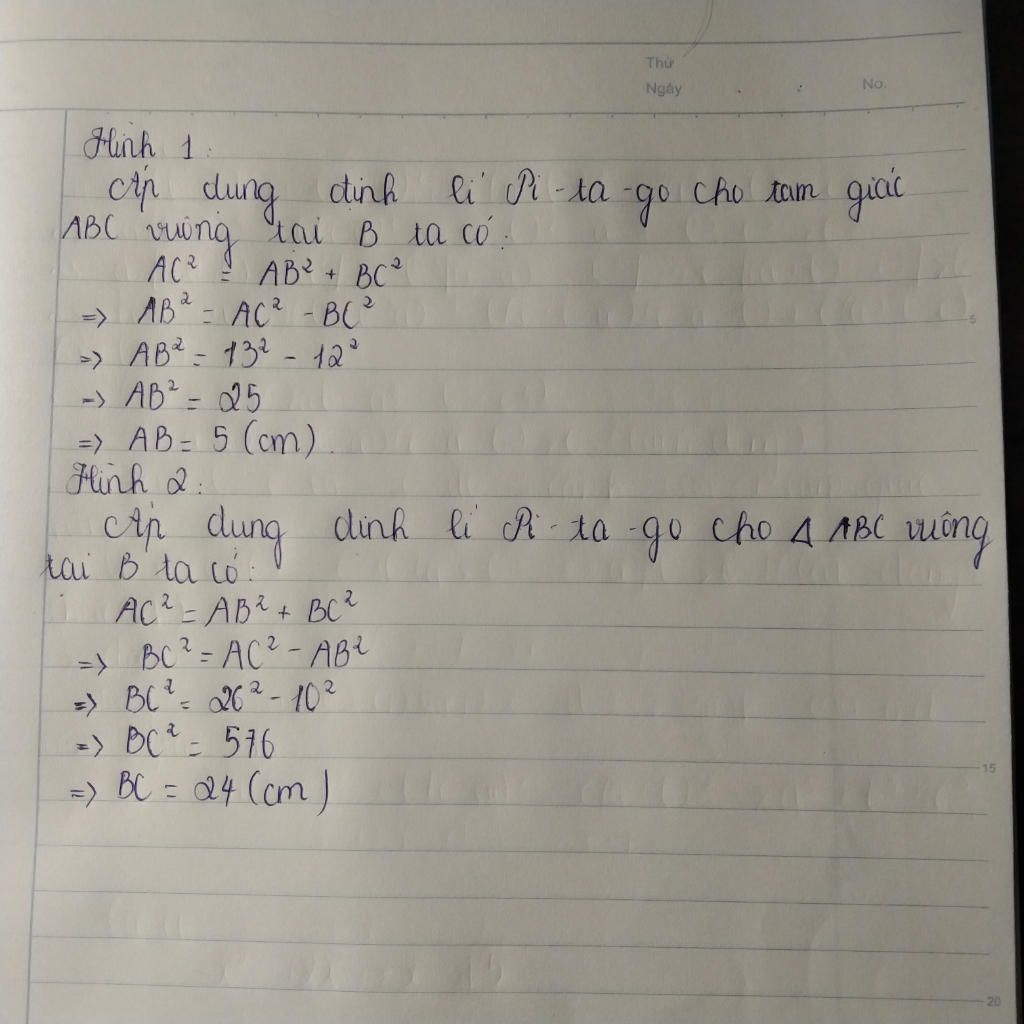 Thứ
Ngày . : No.
Hình 1:
Áp dụng định lí Pi-ta-go cho tam giác
ABC vuông tại B ta có:
AC² = AB² + BC²
=> AB² = AC² - BC²
=> AB² = 13² - 12²
=> AB² = 25
=> AB = 5 (cm).
Hình 2:
Áp dụng định lí Pi-ta-go cho Δ ABC vuông
tại B ta có:
AC² = AB² + BC²
=> BC² = AC² - AB²
=> BC² = 26² - 10²
=> BC² = 576
=> BC = 24 (cm)
5
15
20